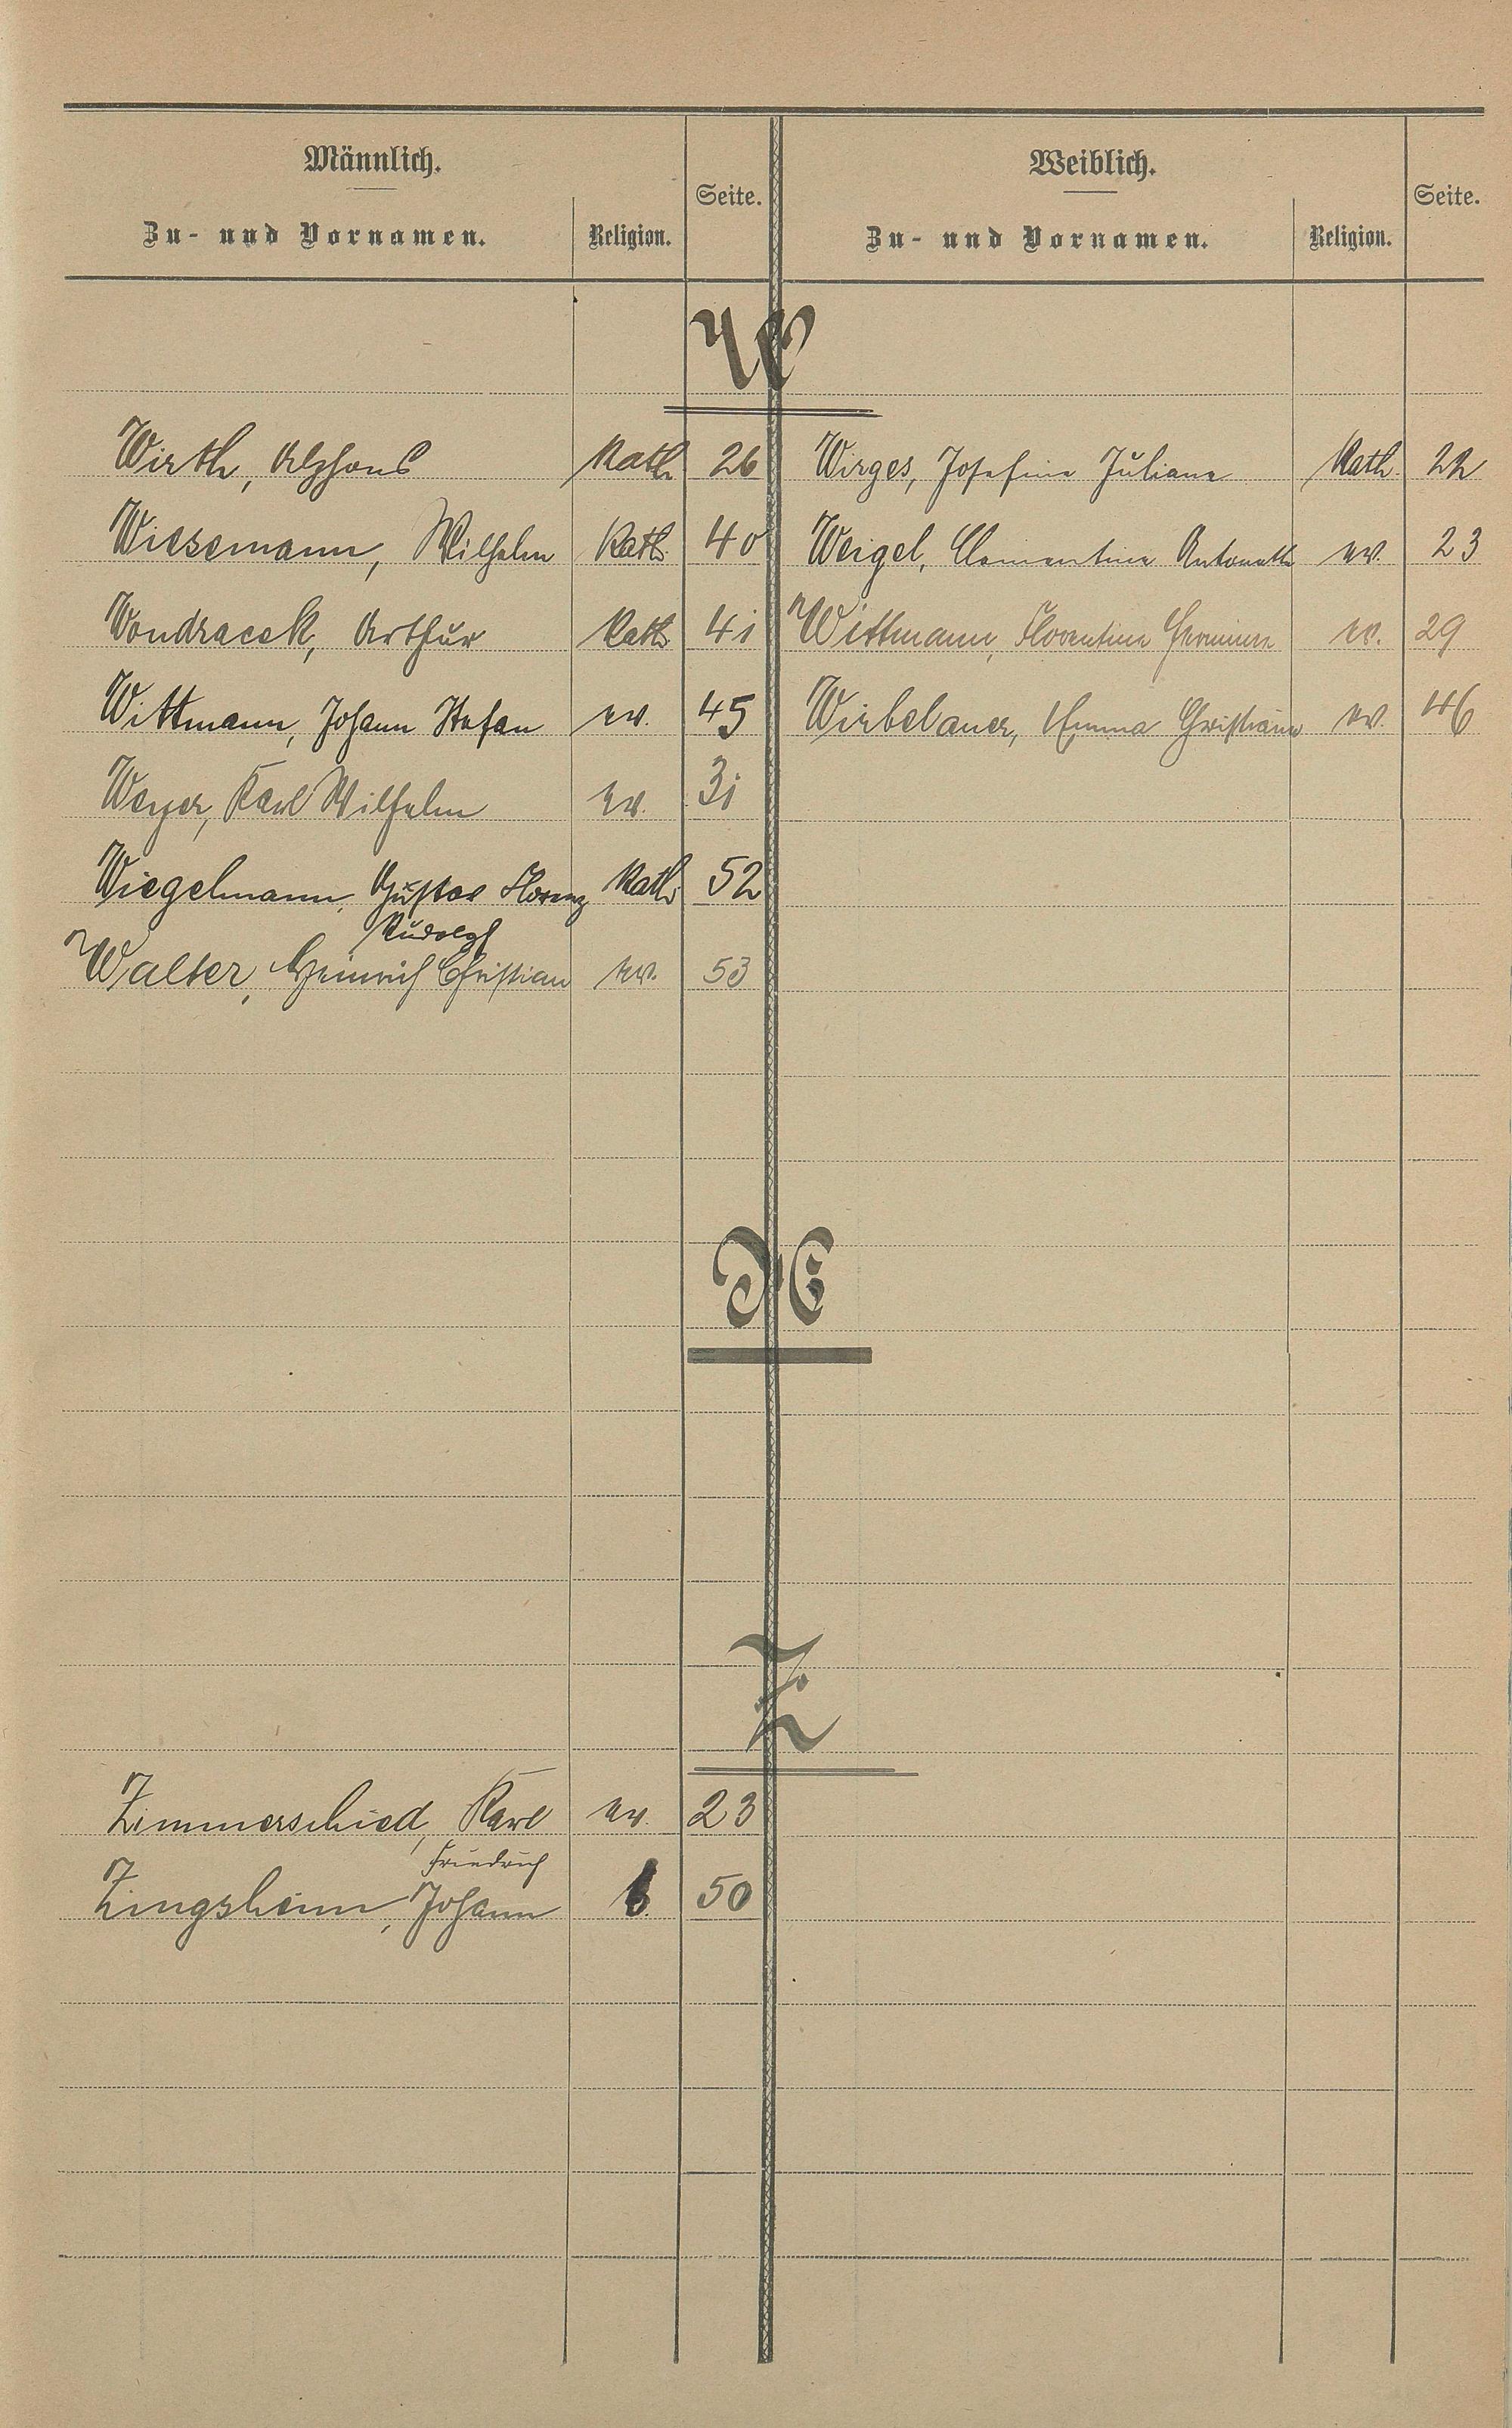 Männlich.
Weiblich.
Zu- und Vornamen. Religion. Seite.
Zu- und Vornamen. Religion. Seite.
W
Wirth, Alphons Kath 26
Wirges, Josefine Juliane Kath 22
Wiesemann, Wilhelm Kath. 40
Weigel, Clementine ev. 23
Wondracek, Arthur Kath 41
Wittmann, Florentine Hermine ev. 29
Wittmann, Johann Stefan ev. 45
Wirbelauer, Emma Christiane ev. 46
Weyer, Karl Wilhelm ev. 31
Wiegelmann, Gustav Florenz Kath. 52
Rudolf
Walter, Heinrich Christian ev. 53
X
Z
Zimmerschied, Karl ev. 23
Friedrich
Zingsheim, Johann 50